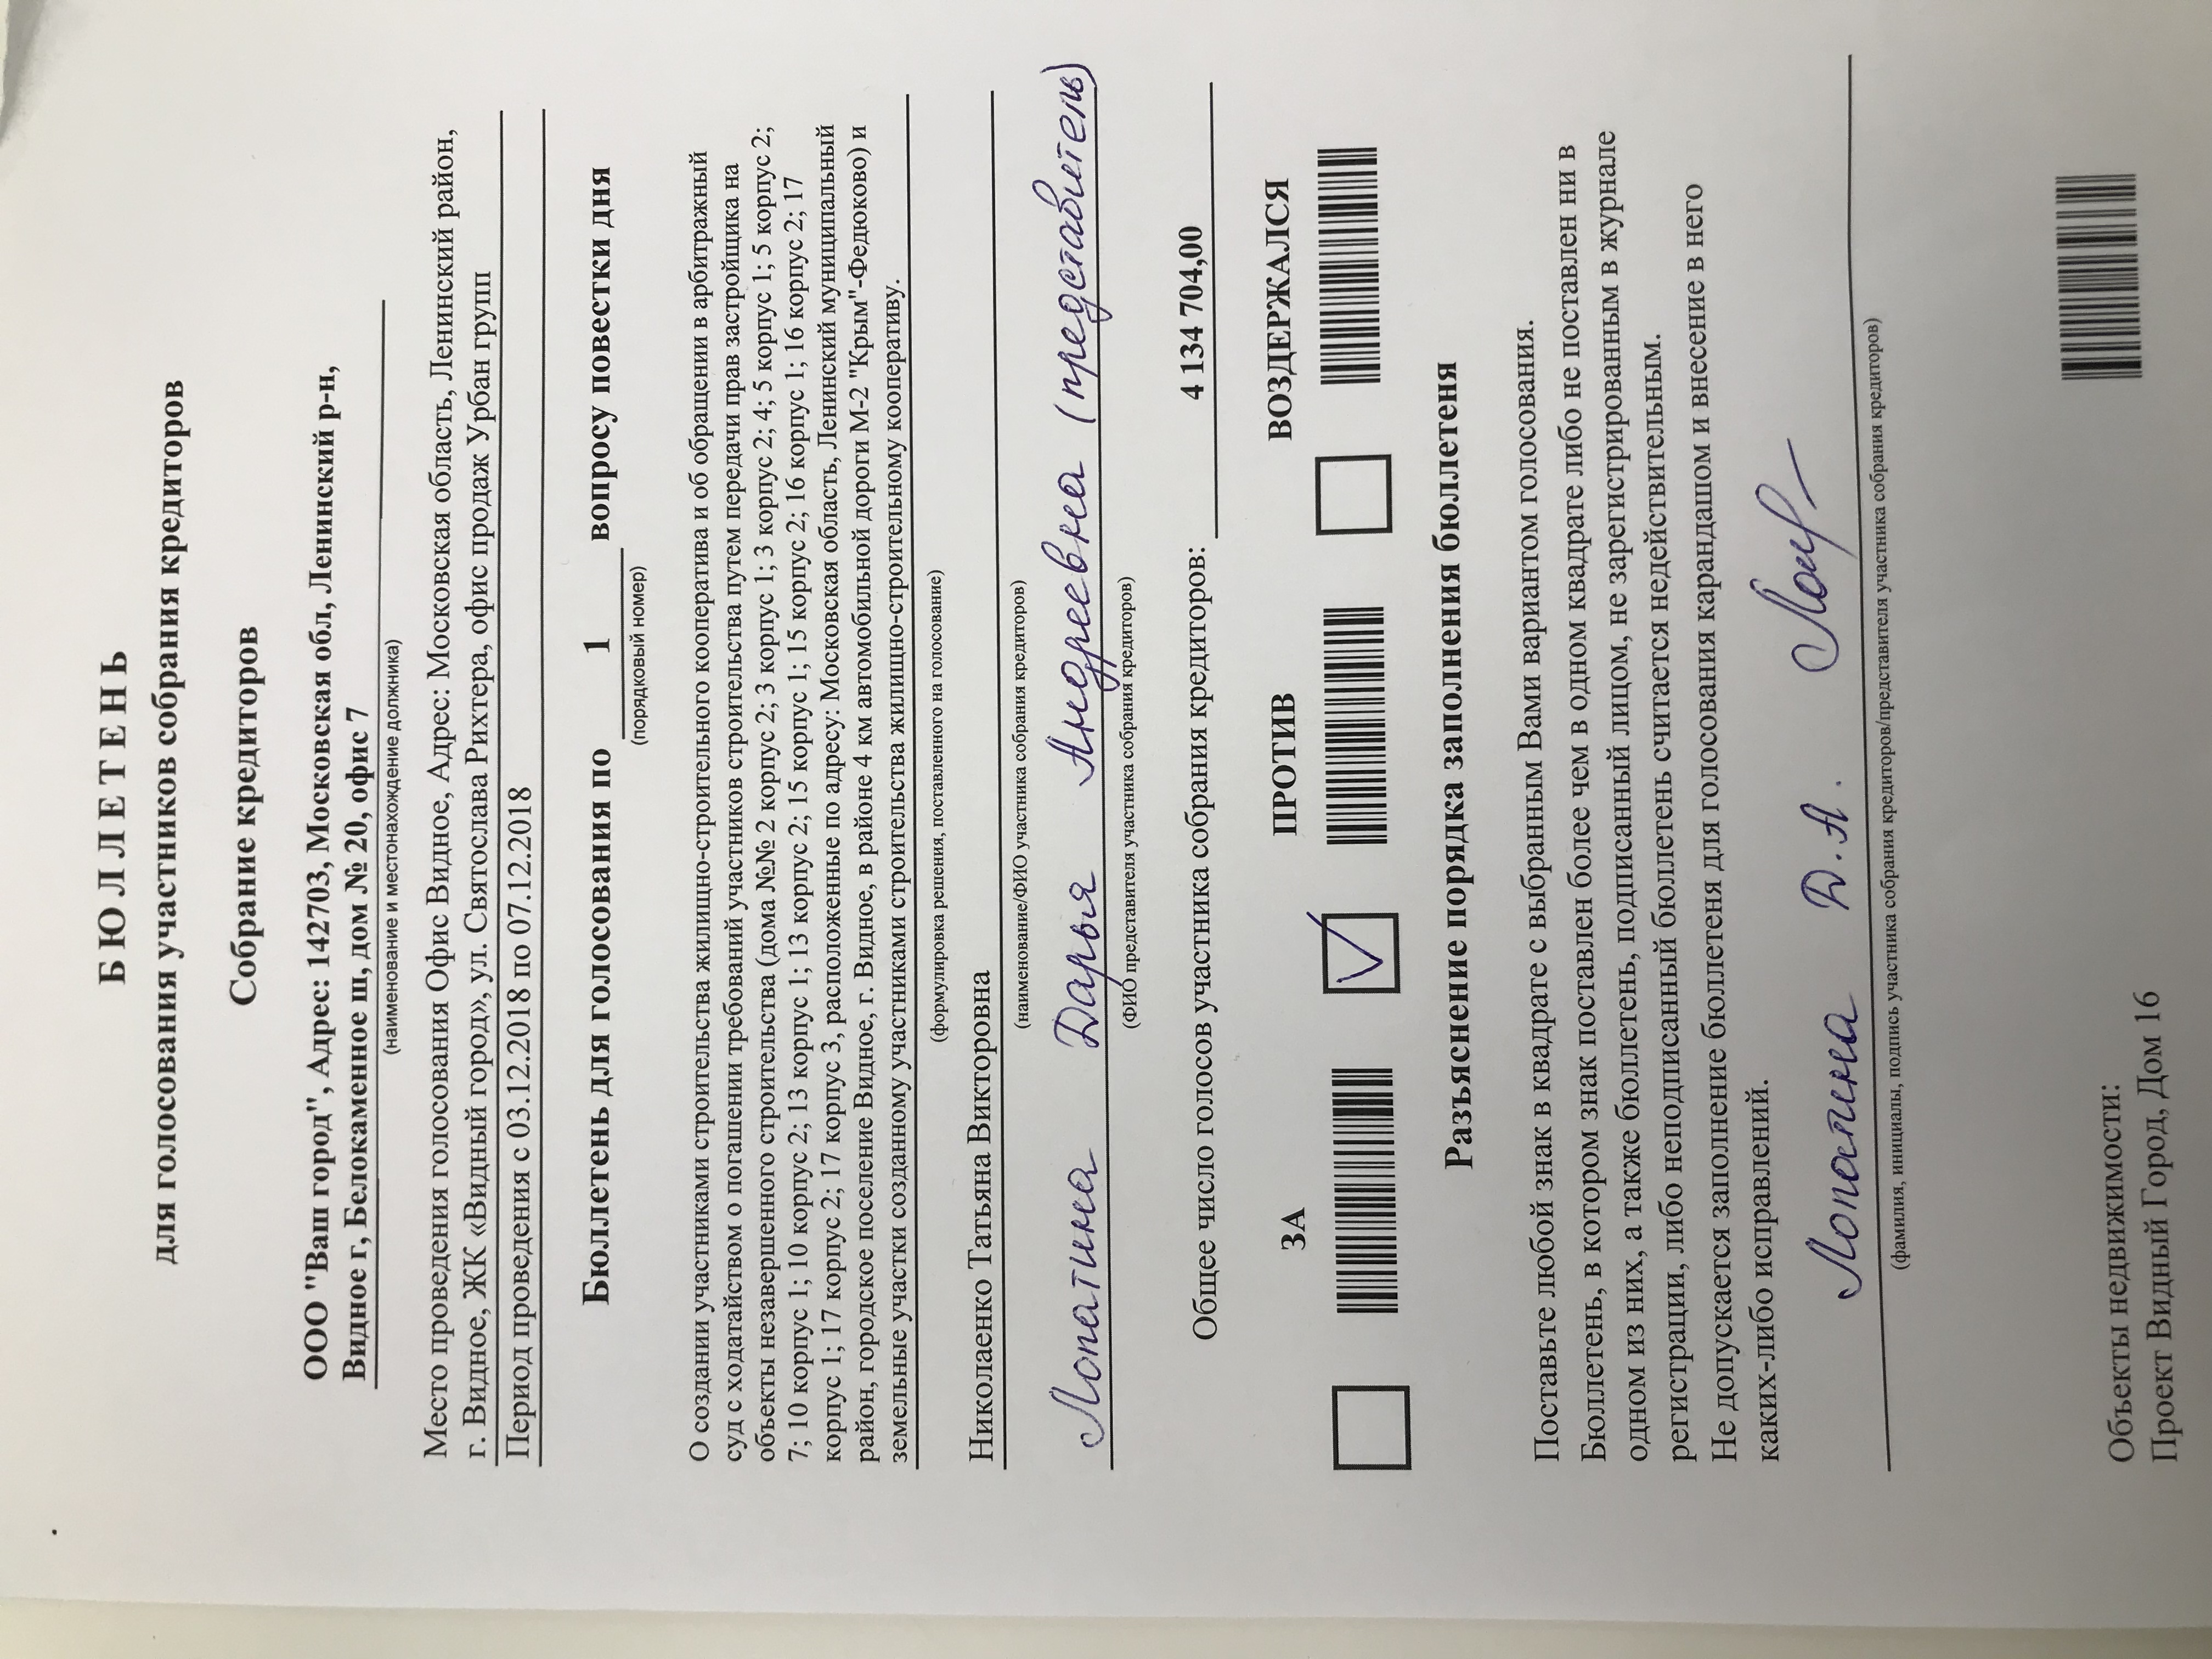 БЮЛЛЕТЕНЬ
для голосования участников собрания кредиторов
Собрание кредиторов
ООО "Ваш город", Адрес: 142703, Московская обл, Ленинский р-н,
Видное г, Белокаменное ш, дом № 20, офис 7
(наименование и местонахождение должника)
Место проведения голосования Офис Видное, Адрес: Московская область, Ленинский район,
г. Видное, ЖК «Видный город», ул. Святослава Рихтера, офис продаж Урбан групп
Период проведения с 03.12.2018 по 07.12.2018
Бюллетень для голосования по 1 вопросу повестки дня
(порядковый номер)
О создании участниками строительства жилищно-строительного кооператива и об обращении в арбитражный
суд с ходатайством о погашении требований участников строительства путем передачи прав застройщика на
объекты незавершенного строительства (дома №№ 2 корпус 2; 3 корпус 1; 3 корпус 2; 4; 5 корпус 1; 5 корпус 2;
7; 10 корпус 1; 10 корпус 2; 13 корпус 1; 13 корпус 2; 15 корпус 1; 15 корпус 2; 16 корпус 1; 16 корпус 2; 17
корпус 1; 17 корпус 2; 17 корпус 3, расположенные по адресу: Московская область, Ленинский муниципальный
район, городское поселение Видное, г. Видное, в районе 4 км автомобильной дороги М-2 "Крым"-Федюково) и
земельные участки созданному участниками строительства жилищно-строительному кооперативу.
(формулировка решения, поставленного на голосование)
Николаенко Татьяна Викторовна
(наименование/ФИО участника собрания кредиторов)
Лопатина Дарья Андреевна (представитель)
(ФИО представителя участника собрания кредиторов)
Общее число голосов участника собрания кредиторов: 4 134 704,00
ЗА ПРОТИВ ВОЗДЕРЖАЛСЯ
Разъяснение порядка заполнения бюллетеня
Поставьте любой знак в квадрате с выбранным Вами вариантом голосования.
Бюллетень, в котором знак поставлен более чем в одном квадрате либо не поставлен ни в
одном из них, а также бюллетень, подписанный лицом, не зарегистрированным в журнале
регистрации, либо неподписанный бюллетень считается недействительным.
Не допускается заполнение бюллетеня для голосования карандашом и внесение в него
каких-либо исправлений.
Лопатина Д.А.
(фамилия, инициалы, подпись участника собрания кредиторов/представителя участника собрания кредиторов)
Объекты недвижимости:
Проект Видный Город, Дом 16